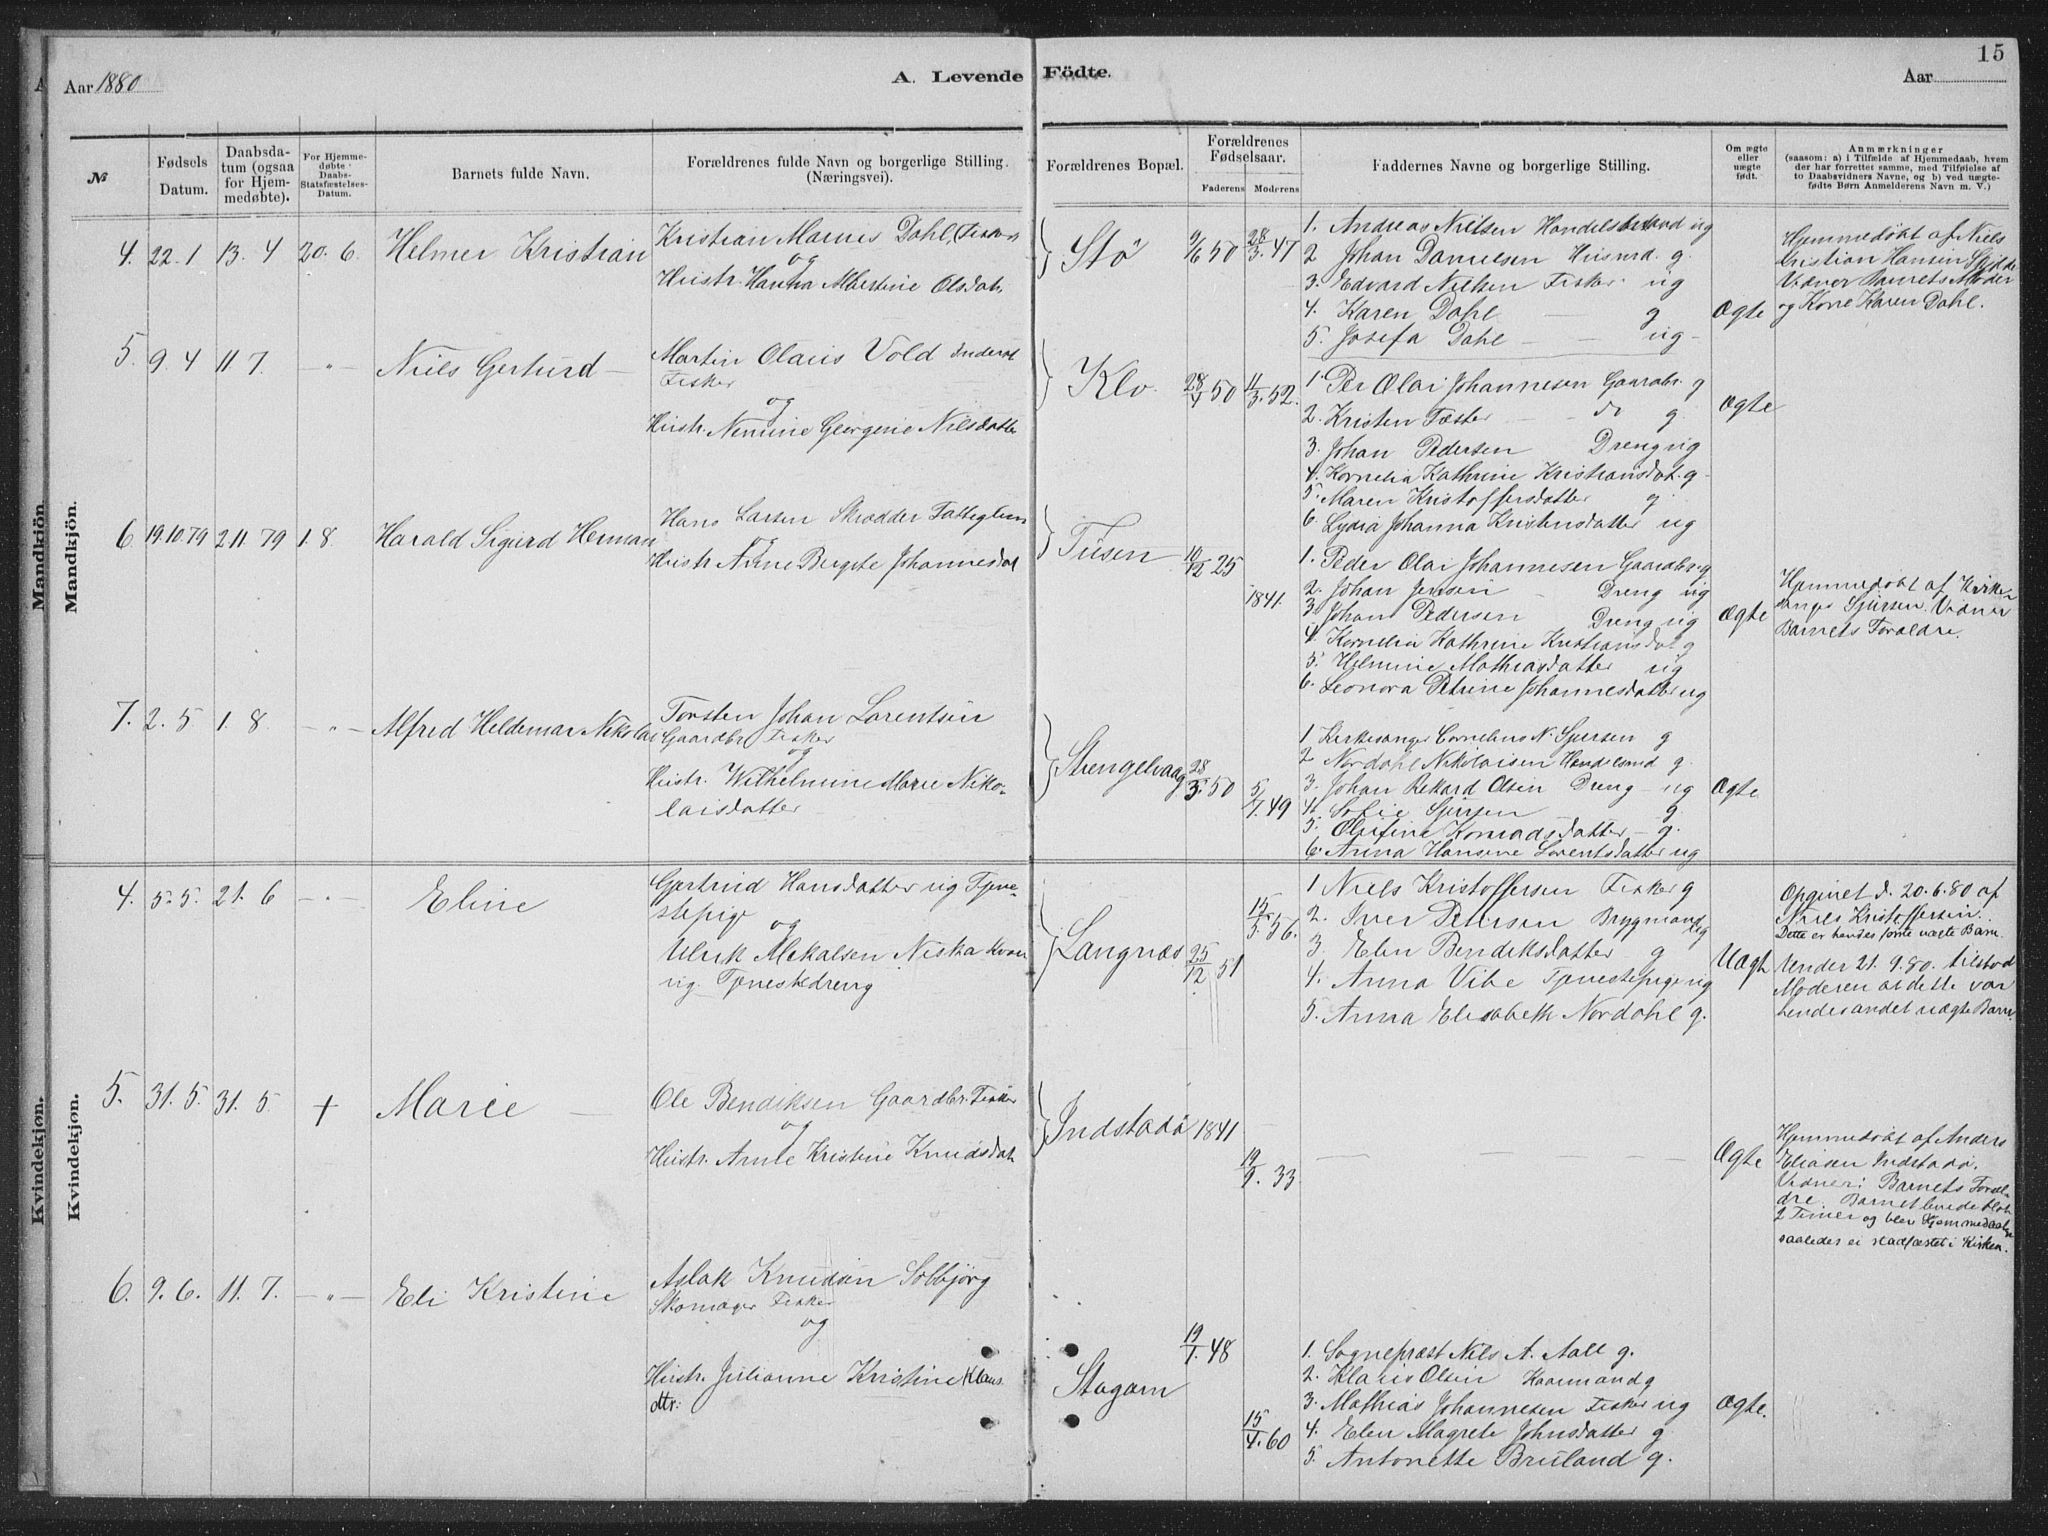 15
Aar 1880
A. Levende Födte.
Aar
№
Fødsels Datum.
Daabsdatum (ogsaa for Hjemmedøbte).
For Hjemmedøbte: Daabs-Statsfæstelses-Datum.
Barnets fulde Navn.
Forældrenes fulde Navn og borgerlige Stilling. (Næringsvei).
Forældrenes Bopæl.
Forældrenes Fødselsaar.
Faderens
Moderens
Faddernes Navne og borgerlige Stilling.
Om ægte eller uægte født.
Anmærkninger
(saasom: a) i Tilfælde af Hjemmedaab, hvem
der har forrettet samme, med Tilføielse af
to Daabsvidners Navne, og b) ved uægte-
fødte Børn Anmelderens Navn m. V.)
Mandkjön.
Mandkjön.
4. 22. 1 13. 4 20. 6. Helmer Kristian
Kristian Marnes Dahl, Fisker
og
Hustr. Hanna Albertine Olsdat.
Stø
9/6 50
28/3. 47
1. Andreas Nielsen ug
2 Johan Danielsen Husmd. g.
3. Edvard Nielsen Fisker ug
4. Karen Dahl — g
5. Josefa Dahl — — ug
Ægte
Hjemmedøbt af Niels
Kristian Hansen
Vidner Barnets Moder
og Kone Karen Dahl.
5. 9. 4 11 7. -"- Niels Gerturd —
Martin Olaus Vold
Fisker
og
Hustr. Nenine Georgene Nilsdatter
Klo.
28/4 50
11/3. 52.
1. Per Olai Johannesen Gaardbr. g
2. Kristen Fæster — do g.
3. Johan Pedersen Dreng ug
4. Kornelia Kathrine Kristiansdat. g
5. Maren Kristoffersdatter g.
6. Lydia Johanna Kristensdatter ug
Ægte
6. 19.10.79 2.11.79 1. 8. Harald Sigurd Herman
Hans Larsen Skrædder Fattiglem
og
Hustr Anne Bergete Johannesdat
Tusen
10/12 25
1841.
1. Peder Olai Johannesen Gaardbr. g
2. Johan Jensen — Dreng ug
3. Johan Pedersen Dreng ug
4. Kornelia Kathrine Kristiansdat g
5. Helmine Mathiasdatter ug
6. Leonora Petrine Johannesdatter ug
Ægte
Hjemmedøbt af Kirke-
sanger Sjursen. Vidner
Barnets Forældre.
7. 2. 5 1. 8. -"- Alfred Heldemar Nikolai
Torsten Johan Lorentsen
Gaardbr. Fisker
og
Hustr. Wilhelmine Marie Niko-
laisdatter
Strengelvaag
28/3. 50
5/7. 49
1 Kirkesanger Cornelius N. Sjursen g
2 Nordahl Nikolaisen g.
3. Johan Rekard Olsen Dreng — ug
4. Sofie Sjursen g.
5. Olufine Konradsdatter — g.
6. Anna Hansine Lorentsdatter ug
Ægte
Kvindekjøn.
Kvindekjøn.
4. 5. 5. 21. 6 -"- Eline
Gjertrud Hansdatter ug Tjene-
stepige
og
Ulrik Mekalsen Niska Kvæn
ug. Tjenestedreng
Langnæs
25/12 51
15/5. 56.
1 Niels Kristoffersen Fisker g
2. Iver Petersen Brygmand ug
3. Elen Bendiksdatter g
4. Anna Vibe Tjenestepige ug
5. Anna Elisabeth Nordahl g.
Uægt.
Opgivet d. 20.6.80 af
Niels Kristoffersen.
Dette er hendes første uægte Barn.
Under 21.9.80. tilstod
Moderen at dette var
hendes andet uægte Barn.
5. 31. 5. 31. 5 + Marie —
Ole Bendiksen Gaardbr. Fisker
og
Hustr. Arnte Kristine Knudsdat
Indstadø
1841
19/9. 33
— — — — —
Ægte
Hjemmedøbt af Anders
Eliasen Indstadø.
Vidner: Barnets Foræl-
dre. Barnet levede blot
2 Timer og blev Hjemmedaaben
saaledes ei stadfæstet i Kirken.
6. 9. 6. 11. 7. -"- Eli Kristine
Aslak Knudsen Solbjørg
Skomager Fisker
og
Hustr. Julianne Kristine Klaus
dtr.
Stagarn
19/1. 48
15/4. 60
1. Sogneprest Nils A. Aall g.
2. Klaus Olsen Kaarmand g
3. Mathias Johannesen Fisker ug
4. Elen Magrete Johnsdatter g
5. Antonette Bruland g.
Ægte.